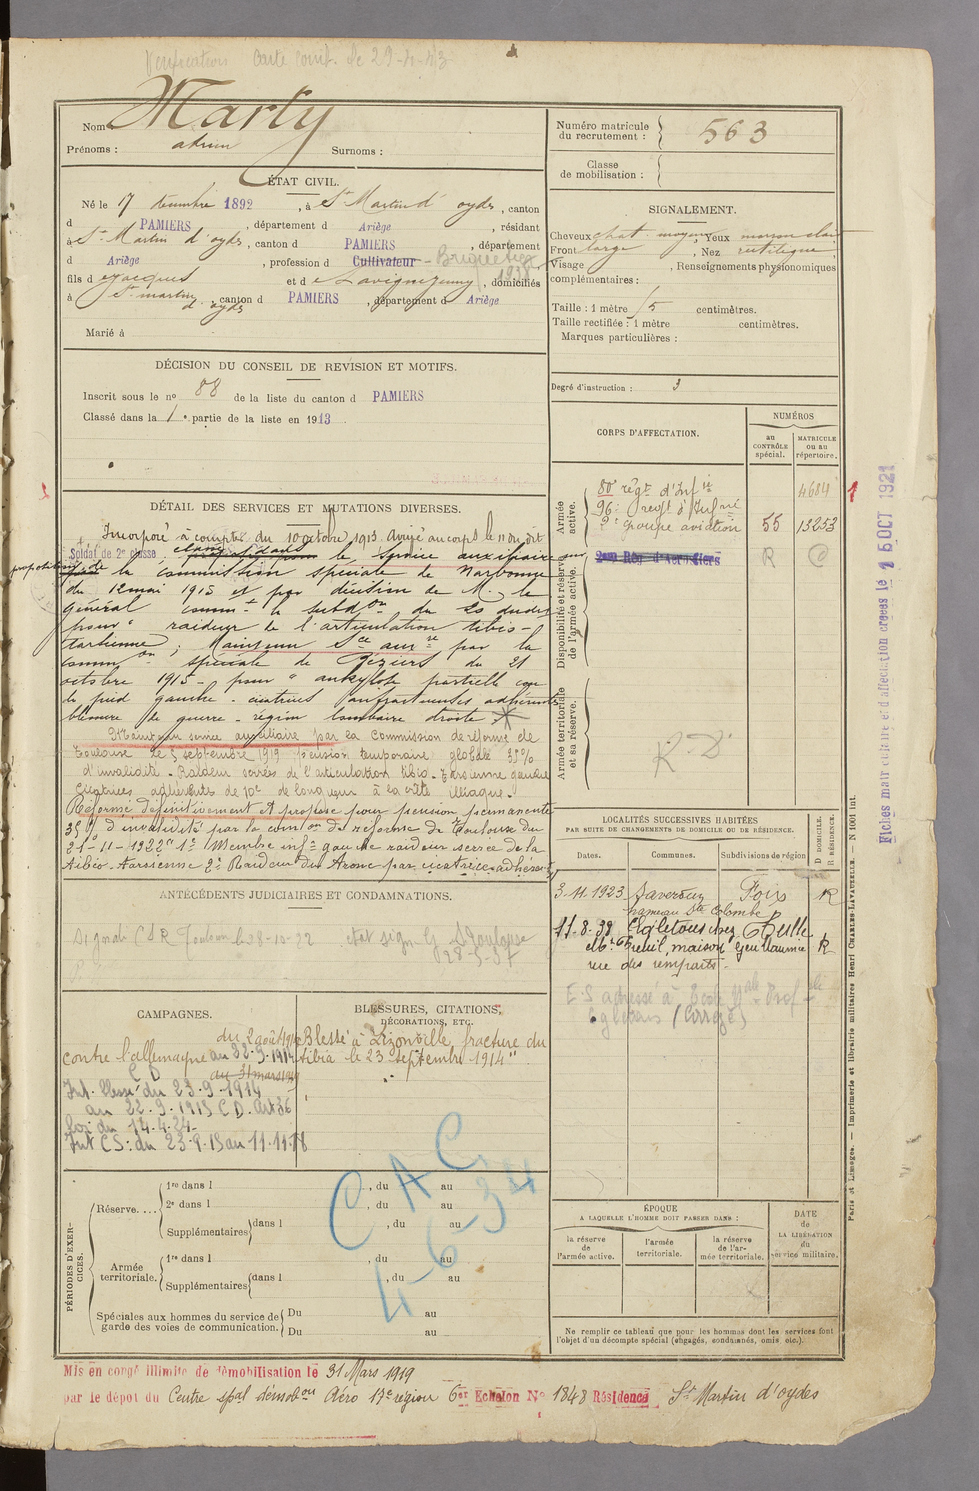 Vérification Carte Comb. le 29-4-43
Nom Marty
Prénoms : Surnoms :
Numéro matricule du recrutement : 563
Classe de mobilisation :
ÉTAT CIVIL.
Né le 17 décembre 1892, à St Martin d'oydes, canton
d PAMIERS, département d Ariège, résidant
à St Martin d'oydes, canton d PAMIERS, département
d Ariège, profession d Cultivateur - Briquetier
1938
fils d Jacques et d Lavigne Jenny, domiciliés
à St martin d'oydes, canton d PAMIERS, département d Ariège
Marié à
SIGNALEMENT.
Cheveux chat. moyen, Yeux marron clair
Front large, Nez rectiligne
Visage , Renseignements physionomiques
complémentaires :
Taille : 1 mètre 5 centimètres.
Taille rectifiée : 1 mètre centimètres.
Marques particulières :
Degré d'instruction : 3
DÉCISION DU CONSEIL DE REVISION ET MOTIFS.
Inscrit sous le no 88 de la liste du canton d PAMIERS
Classé dans la 1e partie de la liste en 1913
CORPS D'AFFECTATION.
NUMÉROS
au CONTRÔLE spécial.
MATRICULE ou au répertoire.
Armée active.
80e régt d'Infie 4684
96e regt d'Infrie
2e Groupe aviation 55 13253
Disponibilité et réserve de l'armée active.
2eme Rég. d'Aérostiers R
Armée territoriale et sa réserve.
R.D.
DÉTAIL DES SERVICES ET MUTATIONS DIVERSES.
Incorporé à compter du 10 octobre 1913. Arrivé au corps le 11 du dit
Soldat de 2e classe. classé dans le service auxiliaire sur
proposition de la commission spéciale de Narbonne
du 12 mai 1915 et par décision de M. le
général commt la subdon du 25 dudit
pour "raideur de l'articulation tibio-
tarsienne ; Maintenu Sce auxre par la
common spéciale de Béziers du 21
octobre 1915 - pour "ankylose partielle cou
de pied gauche - cicatrices anfractueuses adhérentes
blessure de guerre - région lombaire droite
Maintenu service auxiliaire par la Commission de réforme de
Toulouse le 5 septembre 1919 pension temporaire globale 35%
d'invalidité. Raideur serrée de l'articulation tibio-tarsienne gauche
Cicatrices adhérentes de 10c de longueur à la crête illiaque.
Réformé définitivement et proposé pour pension permanente
35% d'invalidité par la comon de réforme de Toulouse du
21-11-1922 "1° Membre inf. gauche raideur serrée de la
tibio-tarsienne 2° Raideur du tronc par cicatrice adhérente
ANTÉCÉDENTS JUDICIAIRES ET CONDAMNATIONS.
LOCALITÉS SUCCESSIVES HABITÉES
PAR SUITE DE CHANGEMENTS DE DOMICILE OU DE RÉSIDENCE.
Dates. Communes. Subdivisions de région D DOMICILE. R RÉSIDENCE.
3.11.1923 Saverdun Foix R
hameau Ste Colombe
11-8-38 Egletons chez Tulle
Mr Treuil, maison Guillaumie R
rue des remparts.
E.S adressé à Ecole Nale Profelle
Egletons (Corrèze)
CAMPAGNES.
contre l'allemagne du 2 août 1914
au 22-9-1914
C D au 31 mars 1919
Int. blessé du 23-9-1914
au 22.9.1915 C D. Art 36
loi du 14.4.24-
Int CS: du 23-9-15 au 11-11-18
BLESSURES, CITATIONS, DÉCORATIONS, ETC.
Blessé à Lizonville, fracture du
tibia le 23 septembre 1914"
PÉRIODES D'EXERCICES.
Réserve.... 1re dans l , du au
2e dans l , du au
Supplémentaires dans l , du au
Armée territoriale. 1re dans l , du au
Supplémentaires dans l , du au
Spéciales aux hommes du service de garde des voies de communication. Du au
Du au
CAC
4-6-34
ÉPOQUE
A LAQUELLE L'HOMME DOIT PASSER DANS :
la réserve de l'armée active. l'armée territoriale. la réserve de l'armée territoriale.
DATE de LA LIBÉRATION du service militaire.
Ne remplir ce tableau que pour les hommes dont les services font
l'objet d'un décompte spécial (engagés, condamnés, omis etc.).
Mis en congé illimité de démobilisation le 31 Mars 1919
par le dépôt du Centre spal démobon Aéro 17e région 6er Echelon No 1848 Résidence St Martin d'oydes
Fiches matriculaire et d'affectation créées le 15 OCT 1921
Paris et Limoges. — Imprimerie et librairie militaires Henri CHARLES-LAVAUZELLE. — N 1001 int.